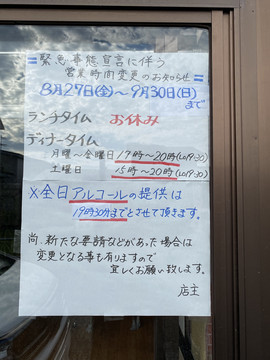 緊急事態宣言に伴う
営業時間変更のお知らせ
8月27日(金)～9月30日(日)
まで
ランチタイム お休み
ディナータイム
月曜～金曜日 17時～20時(LO19:30)
土曜日 15時～20時(LO19:30)
※全日アルコールの提供は
19時30分までとさせて頂きます。
尚、新たな要請などがあった場合は
変更となる事も有りますので
宜しくお願い致します。
店主